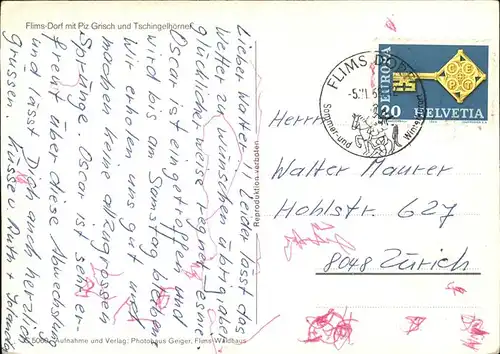 Flims-Dorf mit Piz Grisch und Tschingelhörner
Lieber Walter!! Leider lässt das
Wetter zu wünschen übrig aber
glücklicherweise regnet es nie.
Oscar ist eingetroffen und
wird bis am Samstag bleiben.
Wir erholen uns gut und
machen keine allzugrossen
Sprünge. Oscar ist sehr er-
freut über diese Abwechslung
und lässt Dich auch herzlich
grüssen. Küsse v. Ruth +
5068 Aufnahme und Verlag: Photohaus Geiger, Flims-Waldhaus
Reproduktion verboten
FLIMS DORF
-5.
Sommer- und Wintersport
EUROPA
CEPT
20 HELVETIA
Herrn
Walter Maurer
Hohlstr. 627
8048 Zürich